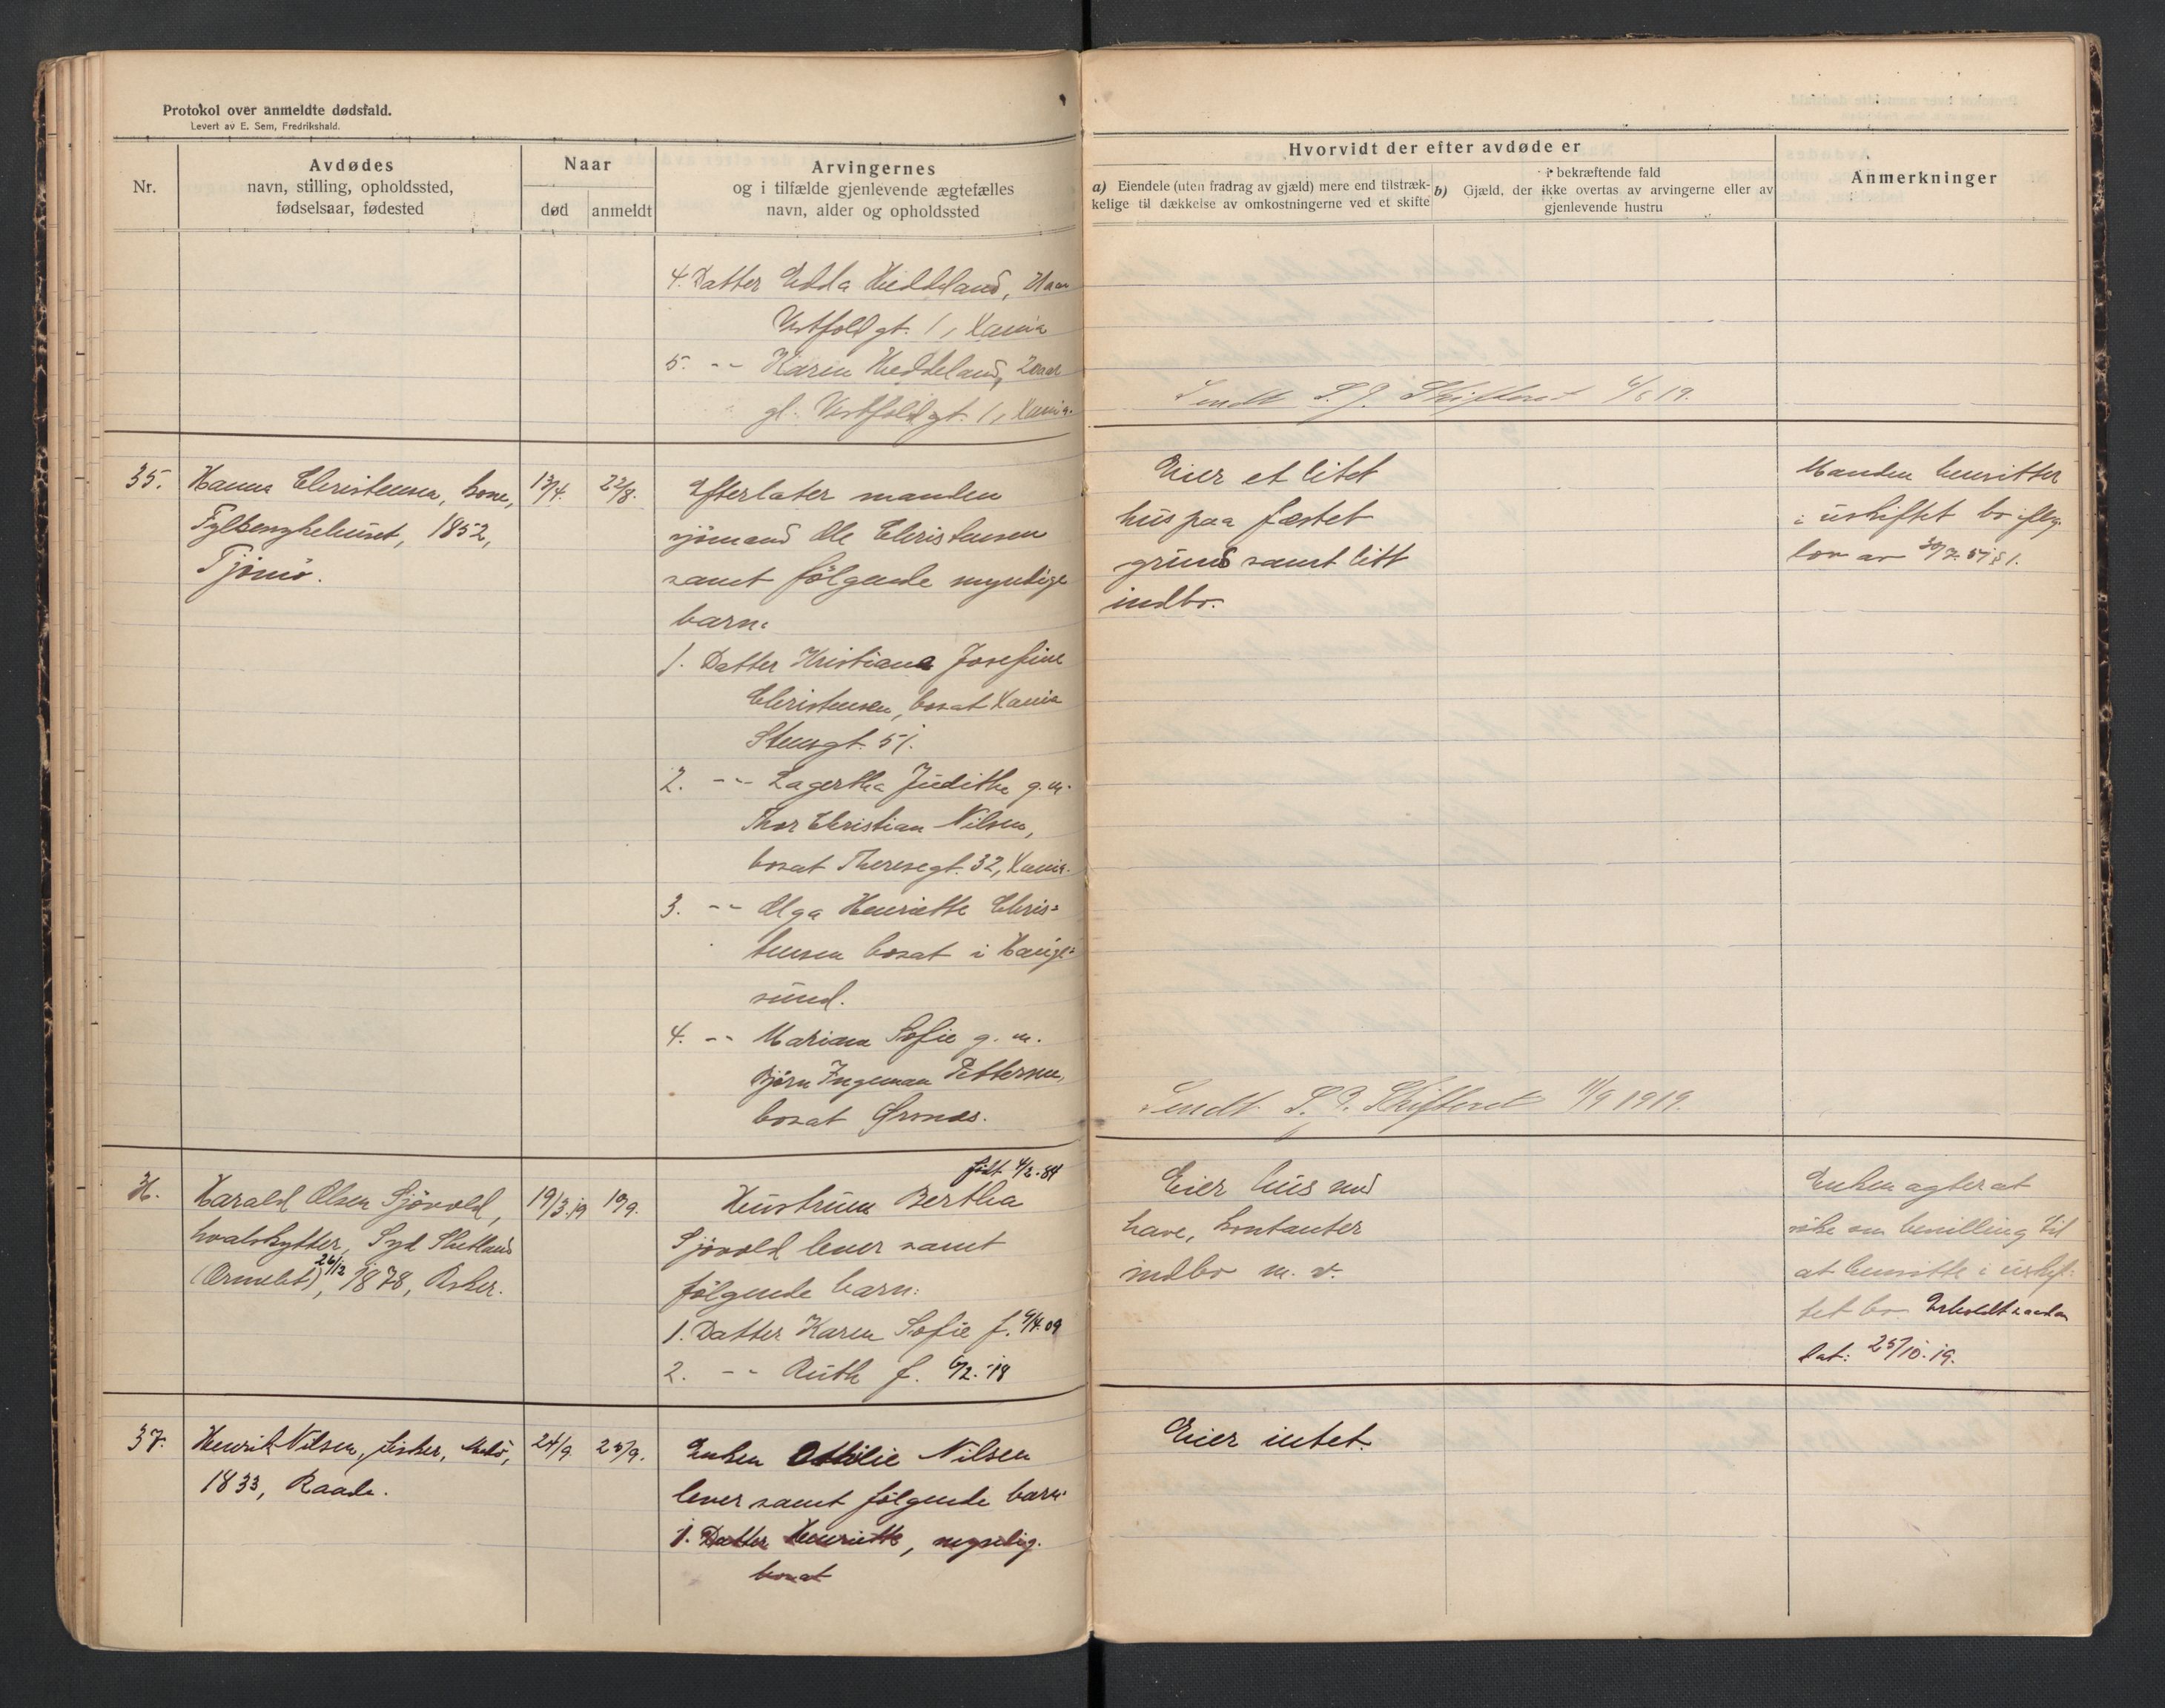 Protokol over anmeldte dødsfald.
Levert av E. Sem, Fredrikshald.
Nr.
Avdødes
navn, stilling, opholdssted,
fødselsaar, fødested
Naar
død
anmeldt
Arvingernes
og i tilfælde gjenlevende ægtefælles
navn, alder og opholdssted
4. Datter Edda Heddeland,
Vestfoldgt. 1, Xania
5. -"- Karen Heddeland, 2 aar
gl. Vestfoldgt. 1, Xania.
35.
Hanna Christensen, kone,
1852,
Tjømø.
13/4.
22/8.
Efterlater manden
sjømand Ole Christensen
samt følgende myndige
barn:
1. Datter Kristiana Josefine
Christensen, bosat Xania
Stensgt. 51.
2. -"- Lagertha Judithe g.m.
Thor Christian Nilsen,
bosat Theresegt. 32, Xania.
3. -"- Olga Henriette Chris-
tensen bosat i Hauge-
sund.
4. -"- Mariane Sofie g. m.
Bjørn Ingeman Pettersen,
bosat
H.
Harald Olsen Sjøvold,
hvalskytter, Syd Shetland
(Ørmelet), 26/12 1878, Asker.
19/3.19
19/9.
født 4/2.84
Hustruen Bertha
Sjøvold lever samt
følgende barn:
1. Datter Karen Sofie f. 9/4.09
2. -"- Ruth f. 6/2.18
37.
Henrik Nilsen, fisker,
1833, Raade.
24/9
25/9.
Enken Othilie Nilsen
lever samt følgende barn:
1. Datter Henriette, myndig.
bosat
Hvorvidt der efter avdøde er
a) Eiendele (uten fradrag av gjæld) mere end tilstræk-
kelige til dækkelse av omkostningerne ved et skifte
i bekræftende fald
b) Gjæld, der ikke overtas av arvingerne eller av
gjenlevende hustru
Anmerkninger
Sendt S. J. Skifteret 19.
Eier et litet
hus paa fæstet
grund samt litt
indbo.
Manden hensitter
i uskiftet bo iflg.
lov av 30/7.51 § 1.
Sendt S. J. Skifteret 11/9 1919.
Eier hus med
have, kontanter
indbo m. v.
Enken agter at
søke om bevilling til
at hensitte i uskif-
tet bo. Erholdt saadan
dat: 25/10.19.
Eier intet.